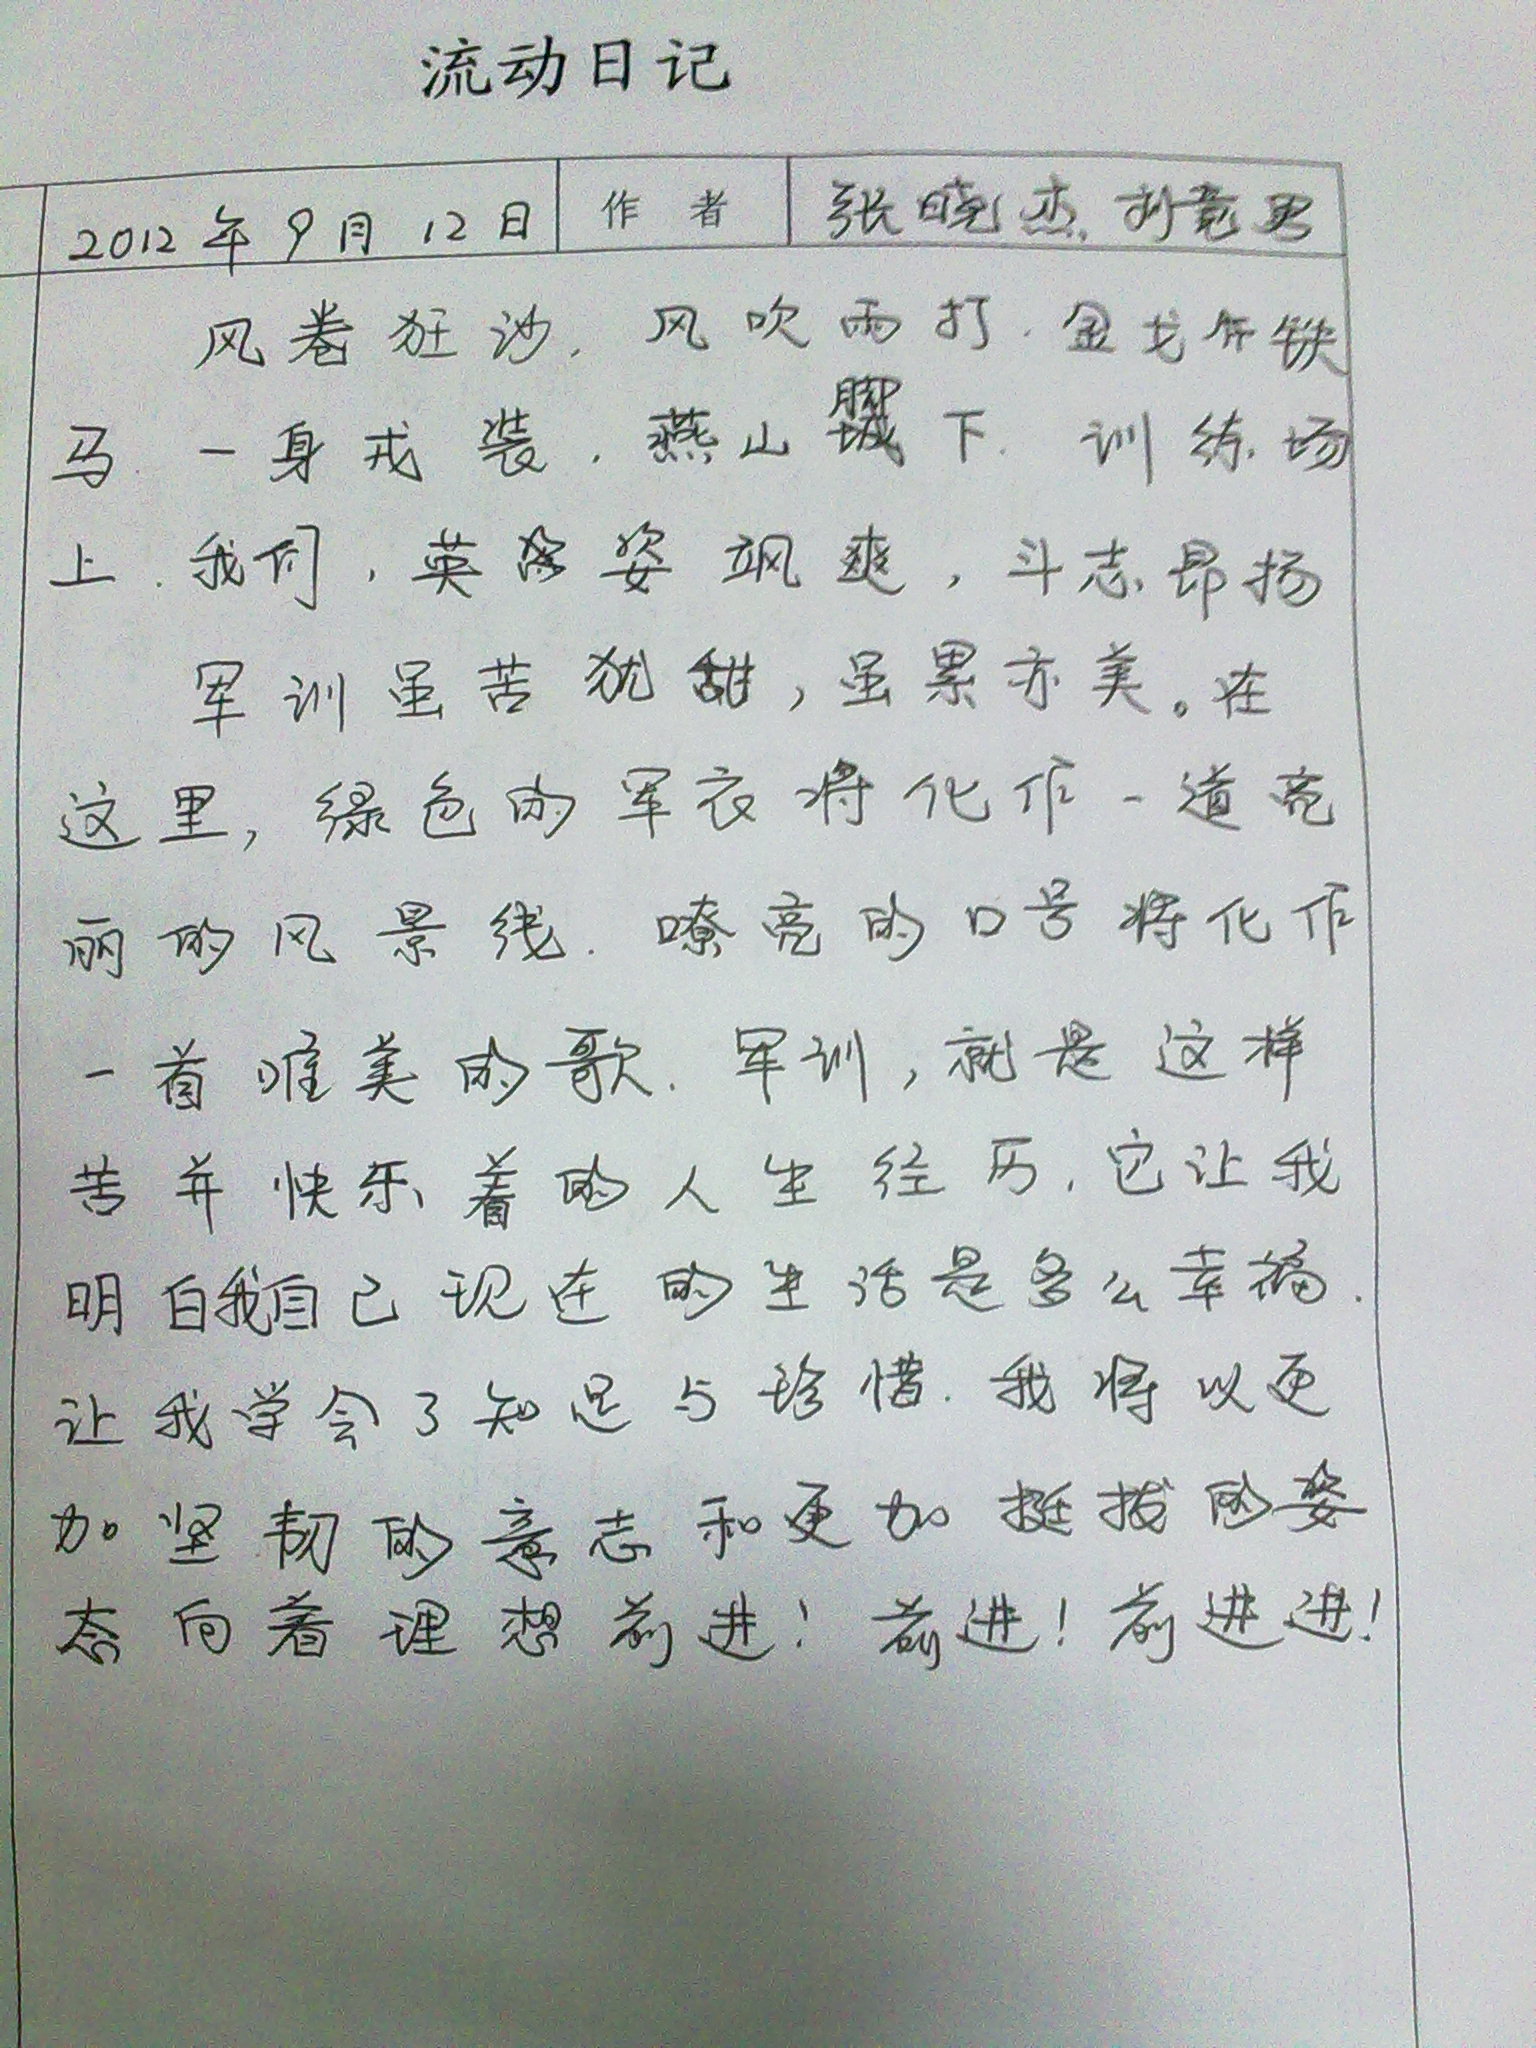 流动日记
2012年9月12日 作者 张晓杰.刘意男
风卷狂沙.风吹雨打.金戈铁
马.一身戎装.燕山脚下.训练场
上.我们,英姿飒爽,斗志昂扬
军训虽苦犹甜,虽累亦美。在
这里,绿色的军衣将化作一道亮
丽的风景线.嘹亮的口号将化作
一首唯美的歌.军训,就是这样
苦并快乐着的人生经历.它让我
明白我自己现在的生活是多么幸福.
让我学会了知足与珍惜.我将以更
加坚韧的意志和更加挺拔的姿
态向着理想前进!前进!前进进!